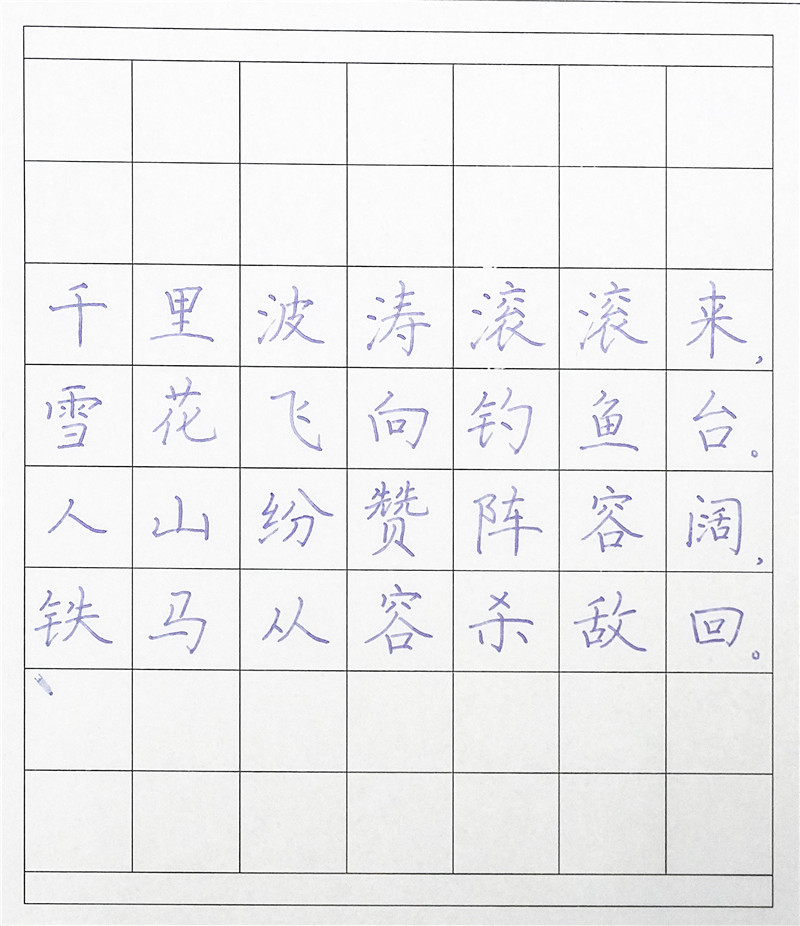 千里波涛滚滚来,
雪花飞向钓鱼台。
人山纷赞阵容阔,
铁马从容杀敌回。